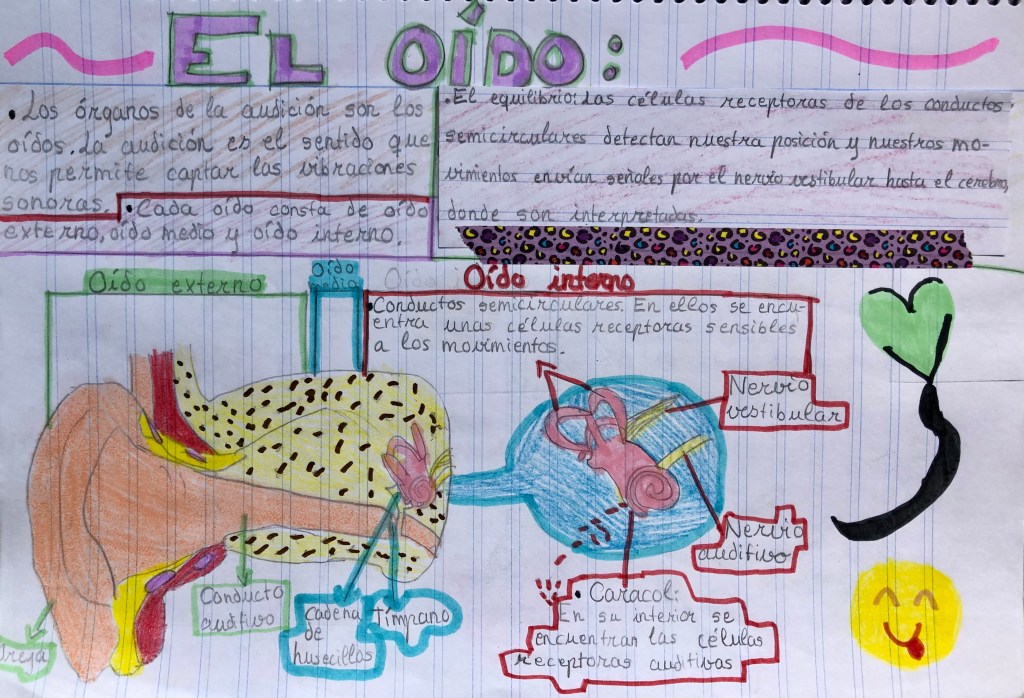 EL OÍDO:
• Los órganos de la audición son los
oídos. La audición es el sentido que
nos permite captar las vibraciones
sonoras. • Cada oído consta de oído
externo, oído medio y oído interno.
• El equilibrio: Las células receptoras de los conductos
semicirculares detectan nuestra posición y nuestros mo-
vimientos envían señales por el nervio vestibular hasta el cerebro,
donde son interpretadas.
Oído externo
Oído
medio
Oído interno
• Conductos semicirculares. En ellos se encu-
entra unas células receptoras sensibles
a los movimientos.
Nervio
vestibular
Nervio
auditivo
• Caracol:
En su interior se
encuentran las células
receptoras auditivas
Oreja
Conducto
auditivo
Cadena
de
huesecillos
Tímpano